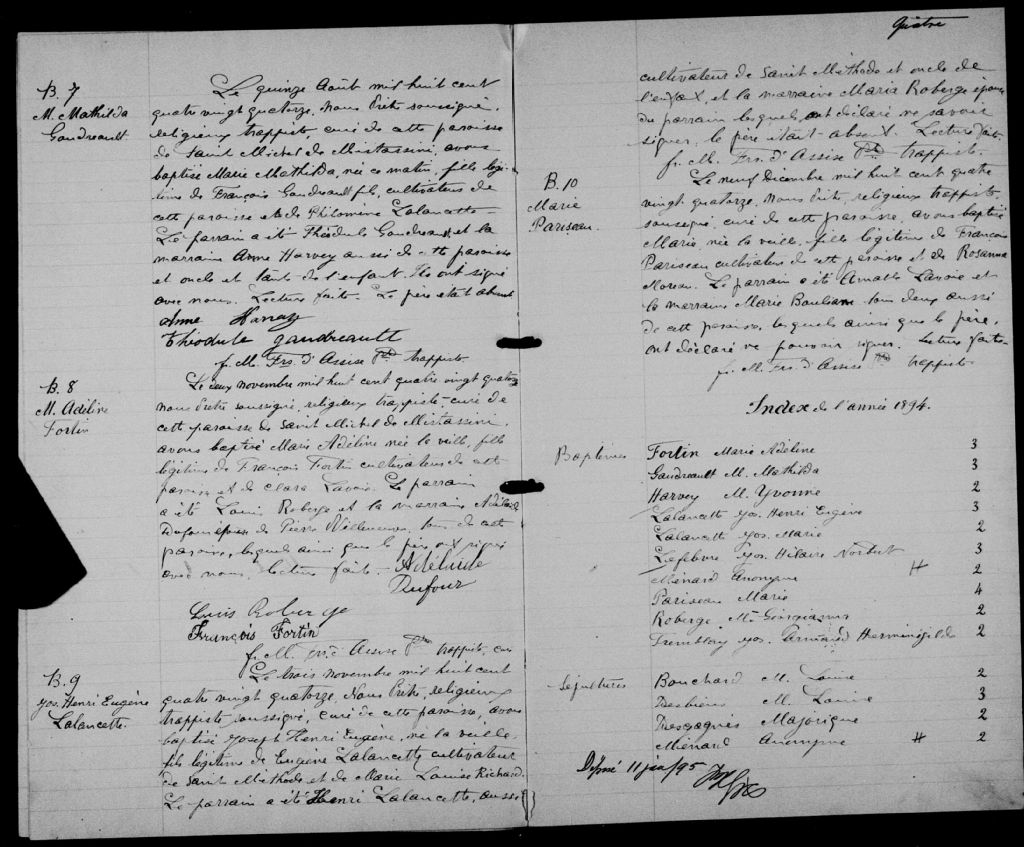 B. 7
M. Mathilda
Gaudreault
Le quinze Août mil huit cent
quatre vingt quatorze, Nous Prêtre soussigné,
religieux trappiste curé de cette paroisse
de Saint Michel de Mistassini, avons
baptisé Marie Mathilda, née ce matin, fille légi-
time de François Gaudreault fils, cultivateur de
cette paroisse et de Philomène Lalancette.
Le parrain a été Théodule Gaudreault et la
marraine Anne Harvey aussi de cette paroisse
et oncle et tante de l'enfant. Ils ont signé
avec nous. Lecture faite. Le père était absent
Anne Harvey
Théodule gaudreault
fr. M. Frs. d'Assise Ptre trappiste
B. 8
M. Adéline
Fortin
Le deux novembre mil huit cent quatre vingt quatorze
nous Prêtre soussigné, religieux trappiste curé de
cette paroisse de Saint Michel de Mistassini,
avons baptisé Marie Adéline née la veille, fille
légitime de François Fortin cultivateur de cette
paroisse et de Clara Lavoie. Le parrain
a été Louis Roberge et la marraine Adélaïde
Dufour épouse de Pierre Villeneuve, tous de cette
paroisse, lesquels ainsi que le père ont signé
avec nous. lecture faite.
Adelaide
Dufour
Louis Roberge
François Fortin
fr. M. frs. d'Assise Ptre trappiste, curé
B. 9
Jos. Henri Eugène
Lalancette
Le trois novembre mil huit cent
quatre vingt quatorze, Nous Prêtre, religieux
trappiste soussigné, curé de cette paroisse, avons
baptisé Joseph Henri Eugène, né la veille,
fils légitime de Eugène Lalancette cultivateur
de Saint Méthode et de Marie Louise Richard.
Le parrain a été Henri Lalancette, aussi
Quatre
cultivateur de Saint Méthode et oncle de
l'enfant, et la marraine Maria Roberge épouse
du parrain lesquels ont déclaré ne savoir
signer. le père était absent. Lecture faite.
fr. M. Frs. d'Assise Ptre trappiste.
B. 10
Marie
Pariseau.
Le neuf Décembre mil huit cent quatre
vingt quatorze, Nous Prêtre, religieux trappiste
soussigné, curé de cette paroisse, avons baptisé
Marie, née la veille, fille légitime de François
Pariseau cultivateur de cette paroisse et de Rosanna
Moreau. Le parrain a été Amable Lavoie et
la marraine Marie tous deux aussi
de cette paroisse, lesquels ainsi que le père,
ont déclaré ne pouvoir signer. Lecture faite
fr. M. Frs. d'Assise Ptre trappiste
Index de l'année 1894.
Baptêmes
Fortin Marie Adéline 3
Gaudreault M. Mathilda 3
Harvey M. Yvonne 2
Lalancette Jos. Henri Eugène 3
Lalancette Jos. Marie 2
Lefebvre Jos. Hilaire Norbert 3
Ménard Anonyme H 2
Pariseau Marie 4
Roberge M. Georgianna 2
Tremblay Jos. Armand Herménégilde 2
Sépultures
Bouchard M. Louise 2
Desbiens M. Louise 3
Desgagnés Majorique 2
Ménard Anonyme H 2
Déposé 11 jan/95